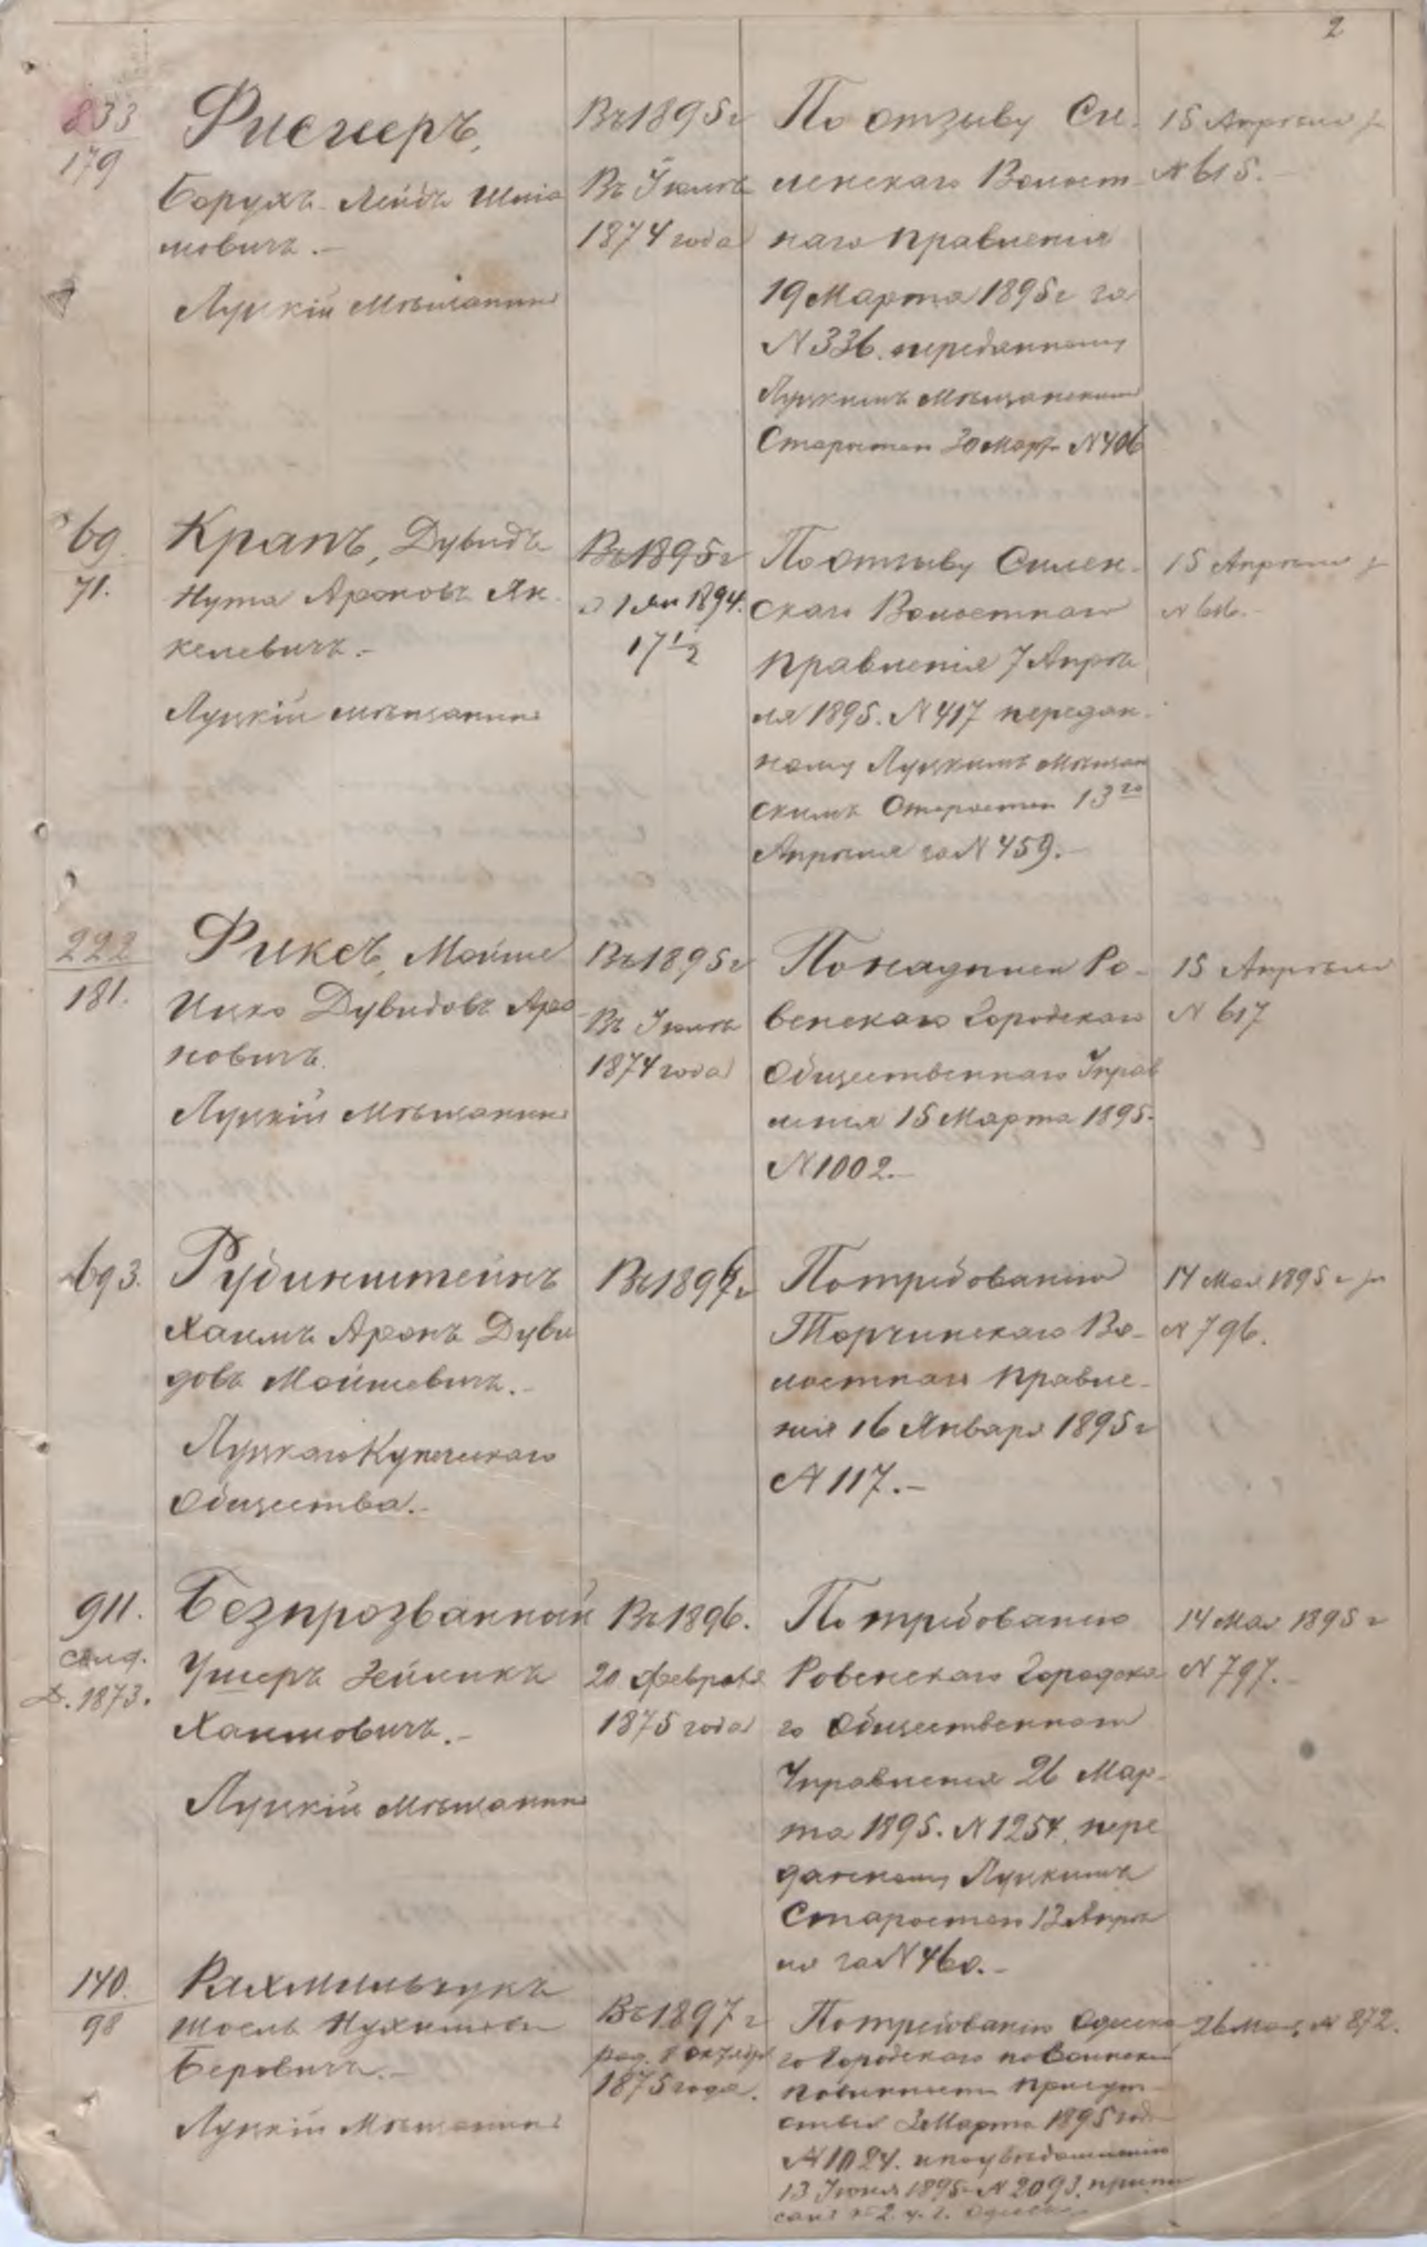 2
833
179
Фишеръ,
Борухъ Лейдъ Шлiо
мовичъ.-
Луцкій Мѣщанинъ
Въ 1895 г
Въ Іюлѣ
1874 года
По отзыву Си-
ленскаго Волост-
наго Правленія
19 Марта 1895 г за
N 336. переданному
Луцкимъ Мѣщанскимъ
Старостою 30 Март N 406
15 Апрѣля
N 615.-
69.
71.
Крапъ, Дувидъ
Нута Ароновъ Ян-
келевичъ.-
Луцкій мѣщанинъ
Въ 1895 г
1 Ян 1894.
17 1/2
По отзыву Силен-
скаго Волостнаго
Правленія 7 Апрѣ
ля 1895. N 417 передан-
ному Луцкимъ Мѣщан
скимъ Старостою 13го
Апрѣля за N 459.-
15 Апрѣля
N 616.-
222
181.
Фиксъ, Мойше
Ицко Дувидовъ Аро-
новичъ.
Луцкій Мѣщанинъ
Въ 1895 г
Въ Іюлѣ
1874 года
По надписи Ро-
венскаго Городскаго
Общественнаго Управ
ленія 15 Марта 1895.
N 1002.-
15 Апрѣля
N 617
693.
Рубинштейнъ
Хаимъ Аронъ Дуви
довъ Мойшевичъ.-
Луцкаго Купеческаго
Общества.-
Въ 1896 г
По требованію
Торчинскаго Во-
лостнаго Правле-
нія 16 Января 1895 г
N 117.-
14 Мая 1895 г
N 796.
911.
1873.
Безпрозванный
Ушеръ Зейликъ
Хаимовичъ.-
Луцкій Мѣщанинъ
Въ 1896.
20 Февраля
1875 года
По требованію
Ровенскаго Городска
го Общественнаго
Управленія 26 Мар-
та 1895. N 1254, пере
данному Луцкимъ
Старостою 13 Апрѣ
ля за N 460.-
14 Мая 1895 г
N 797.-
140.
98
Рахмильчукъ
Шоель Нухимовъ
Беровичъ.-
Луцкій Мѣщанинъ
Въ 1897 г
род. 8 октября
1875 года.
По требованію Одеска
го Городскаго по Воинской
повинности Присут-
ствія Марта 1895 года
N 1024. и по увѣдомленію
13 Іюня 1895 N 2093. припи
санъ къ 2 у. г. Одессы
26 Мая N 872.